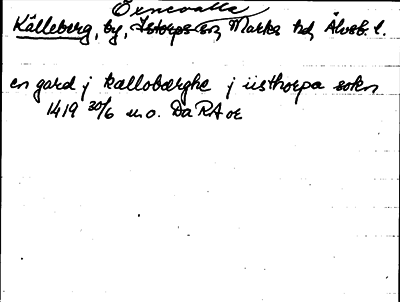 Öxnevalla
Källeberg, by, Istorps sn, Marks hd, Älvsb. l.
en gard j kællobærghe j iisthorpa sokn
1419 30/6 u.o. Da RA or